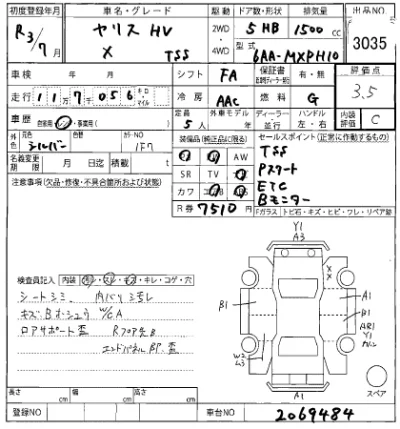 初度登録年月 車名・グレード 駆動 ドア数・形状 排気量 出品NO
R3/7月 ヤリス HV 2WD 5 HB 1500cc 3035
X TSS 4WD 型式 6AA-MXPH10
車検 年 月 シフト FA 保証書 有・無 評価点
3.5
走行 117056 キロ・マイル 冷房 AAC 燃料 G
内装評価 C
車歴 定員 5人 外車モデル 年 ディーラー・並行 ハンドル 左・右
外色 元色 シルバー カラーNO 1F7
装備品(純正品に限る) セールスポイント(正常に作動するもの)
AW
TSS
名義変更期限 月 日迄 積載 t
SR TV
Pスタート
ETC
注意事項(欠品・修復・不具合箇所および状態)
カワ
Bモニター
R券 7510円
Fガラス トビ石・キズ・ヒビ・ワレ・リペア跡
Y1
A3
検査員記入 内装 キレ・コゲ・穴
シートシミ 内バリ汚レ
W/C A
ロアサポート歪
エンドパネル
B1
A1
B1
Y1
W2
A1
スペア
長さ cm 幅 cm 高さ cm
登録NO 車台NO 2069484